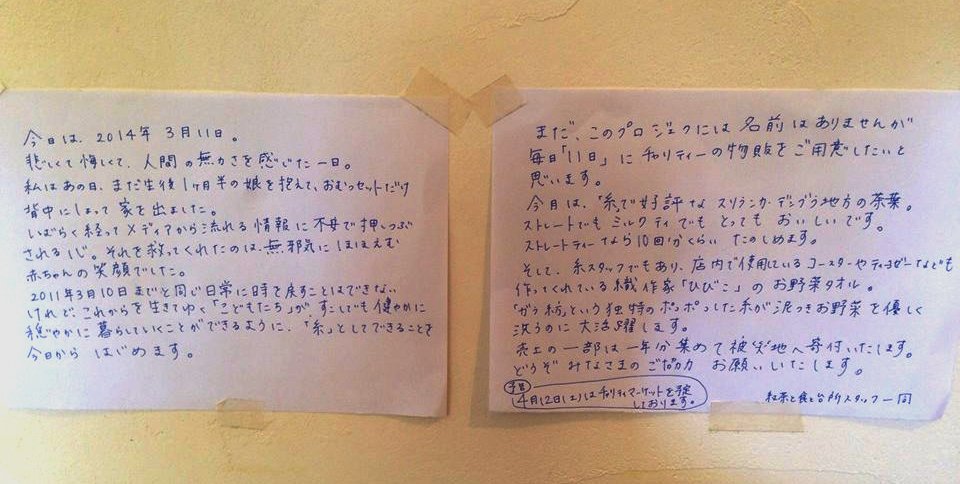 今日は、2014年 3月11日。
悲しくて悔しくて、人間の無力さを感じた一日。
私はあの日、まだ生後1ヶ月半の娘を抱えて、おむつセットだけ
背中にしょって 家を出ました。
しばらく経ってメディアから流れる情報に不安で押しつぶ
される心。それを救ってくれたのは、無邪気にほほえむ
赤ちゃんの笑顔でした。
2011年3月10日までと同じ日常に時を戻すことはできない
けれど、これからを生きてゆく「こどもたち」が、すこしでも健やかに
穏やかに暮らしていくことができるように、「糸」としてできることを
今日から はじめます。
まだ、このプロジェクには名前はありませんが
毎日「11日」にチャリティーの物販をご用意したいと
思います。
今日は、「糸」で好評なスリランカ・ディンブラ地方の茶葉。
ストレートでもミルクティでも とっても おいしいです。
ストレートティーなら10回分くらい たのしめます。
そして、糸スタッフでもあり、店内で使用しているコースターやティコゼーなども
作ってくれている織作家「ひびこ」のお野菜タオル。
「ガラ紡」という独特のポコポコした糸が泥つきお野菜を優しく
洗うのに大活躍します。
売上の一部は一年分集めて被災地へ寄付いたします。
どうぞ みなさまのご協力 お願いいたします。
予告
4月12日(土)はチャリティマーケットを予定
しております。
紅茶と食と台所スタッフ一同